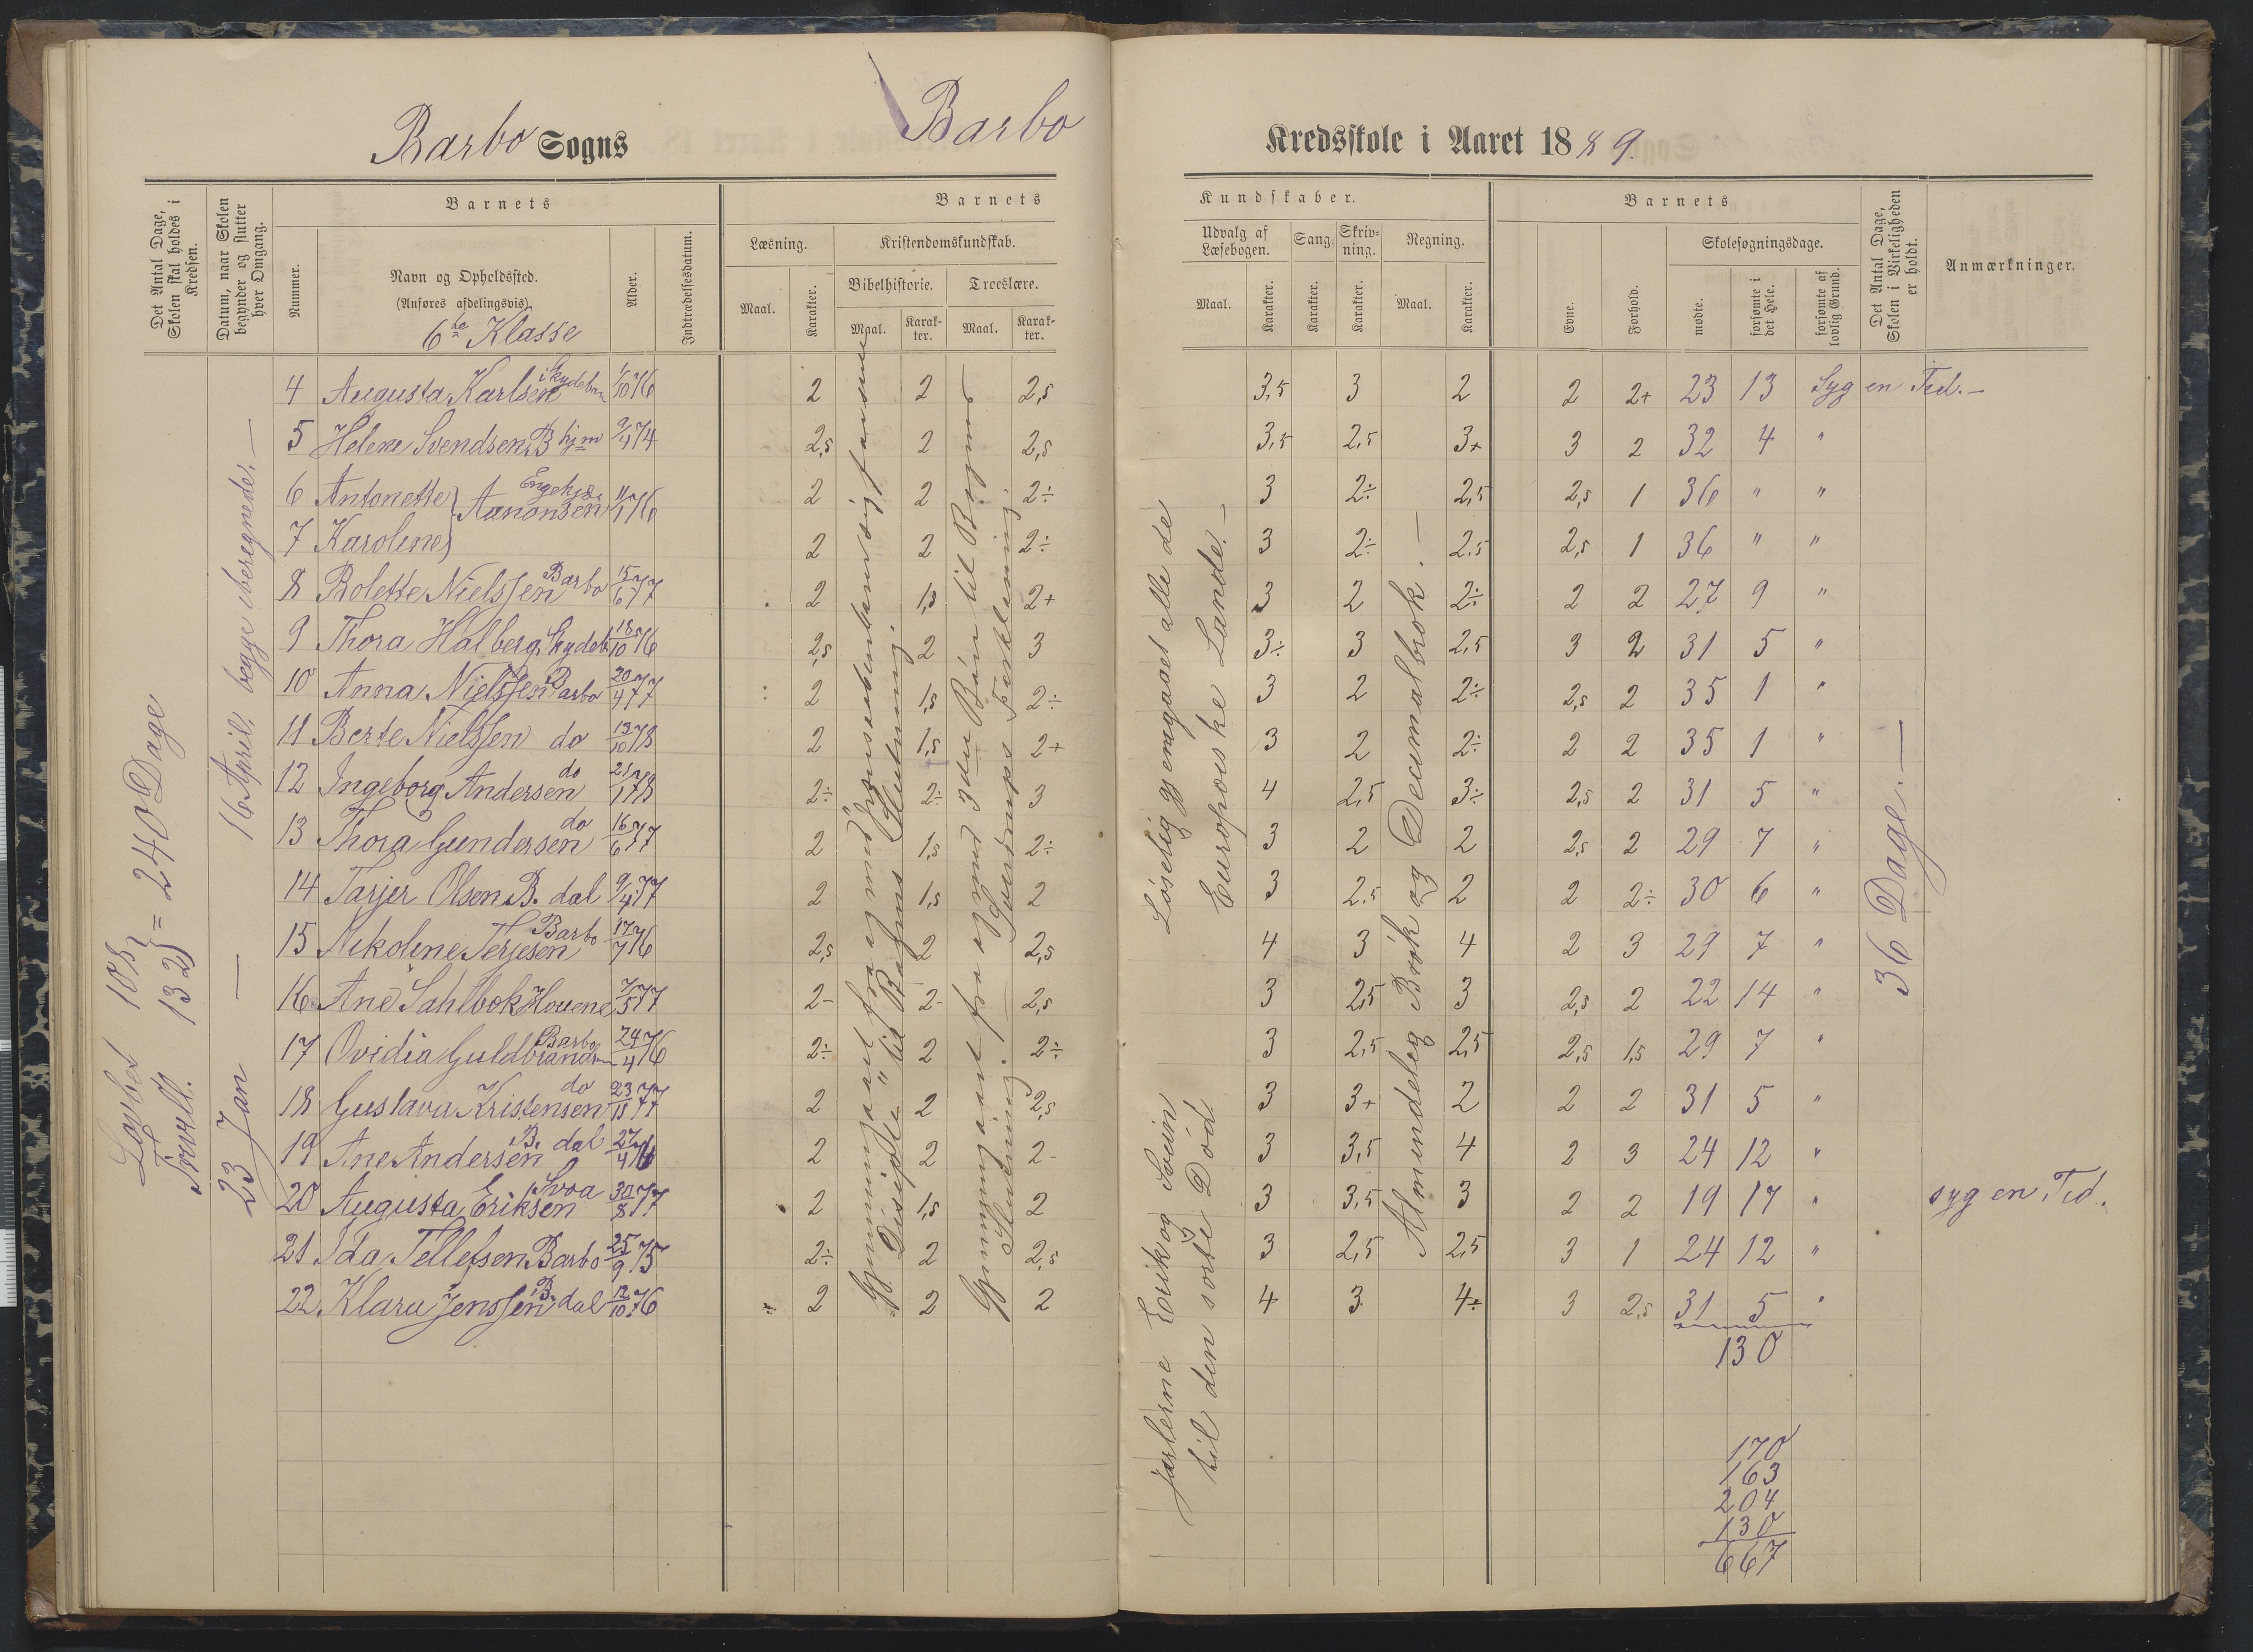 Barbo Sogns
Barbo
Kredsskole i Aaret 1889.
Det Antal Dage, Skolen skal holdes i Kredsen.
Datum, naar Skolen begynder og slutter hver Omgang.
Nummer.
Barnets
Navn og Opholdssted.
(Anføres afdelingsvis).
6te Klasse
Alder.
Indtrædelsesdatum.
Barnets
Læsning.
Maal.
Karakter.
Kristendomskundskab.
Bibelhistorie.
Maal.
Karakter.
Troeslære.
Maal.
Karakter.
Kundskaber.
Udvalg af Læsebogen.
Maal.
Karakter.
Sang.
Karakter.
Skrivning.
Karakter.
Regning.
Maal.
Karakter.
Barnets
Evne.
Forhold.
Skolesøgningsdage.
mødte.
forsømte i det Hele.
forsømte af lovlig Grund.
Det Antal Dage, Skolen i Virkeligheden er holdt.
Anmærkninger.
4 Augusta Karlsen Skydebn 1/10 76 2 2 2,5 3,5 3 2 2 2+ 23 13 Syg en Tid.
5 Helene Svendsen B hjm 9/4 74 2,5 2 2,5 3,5 2,5 3+ 3 2 32 4 "
6 Antonette } Aanonsen Engehj 11/1 76 2 2 2÷ 3 2÷ 2,5 2,5 1 36 " "
7 Karoline } 2 2 2÷ 3 2÷ 2,5 2,5 1 36 " "
8 Rolette Nielssen Barbo 15/6 77 2 1,5 2+ 3 2 2÷ 2 2 27 9 "
9 Thora Halberg, Skydeb 18/10 76 2,5 2 3 3÷ 3 2,5 3 2 31 5 "
10 Anna Nielssen Barbo 20/4 77 2 1,5 2÷ 3 2 2÷ 2,5 2 35 1 "
11 Berte Nielssen do 13/10 78 2 1,5 2+ 3 2 2÷ 2 2 35 1 "
12 Ingeborg Andersen do 21/1 78 2÷ 2÷ 3 4 2,5 3÷ 2,5 2 31 5 "
13 Thora Gundersen do 16/6 77 2 1,5 2÷ 3 2 2 2,5 2 29 7 "
14 Tarjer Olsen B. dal 9/4 77 2 1,5 2 3 2,5 2 2 2÷ 30 6 "
15 Nikoline Terjesen Barbo 17/7 76 2,5 2 2,5 4 3 4 2 3 29 7 "
16 Ane Sahlbok Hovene 7/5 77 2- 2- 2,5 3 2,5 3 2,5 2 22 14 "
17 Ovidia Guldbrandsn Barbo 24/4 76 2÷ 2 2÷ 3 2,5 2,5 2,5 1,5 29 7 "
18 Gustava Kristensen do 23/11 77 2 2 2,5 3 3+ 2 2 2 31 5 "
19 Ane Andersen B. dal 27/4 76 2 2 2- 3 3,5 4 2 3 24 12 "
20 Augusta Eriksen Svoa 30/8 77 2 1,5 2 3 3,5 3 2 2 19 17 " syg en Tid.
21 Ida Tellefsen Barbo 25/9 75 2÷ 2 2,5 3 2,5 2,5 3 1 24 12 "
22. Klara Jenssen B. dal 12/10 76 2 2 2 4 3 4÷ 3 2,5 31 5 "
130
170
163
204
130
667
Lovbst 108
Frivill. 132 } = 240 Dage
23 Jan — 16 April, begge iberegnede. —
Gjennemgaaet fra og med
Disiple" til Bogens Slutning.
Gjennemgaaet fra og med 3die Bøn til Bogens
Slutning. Sverdrups Forklaring.
Jarlerne Erik og Svein
til den sorte Død.
Løselig gjemgaaet alle de
Europæiske Lande. —
Almindelig Brøk og Decimalbrøk. —
36 Dage. —